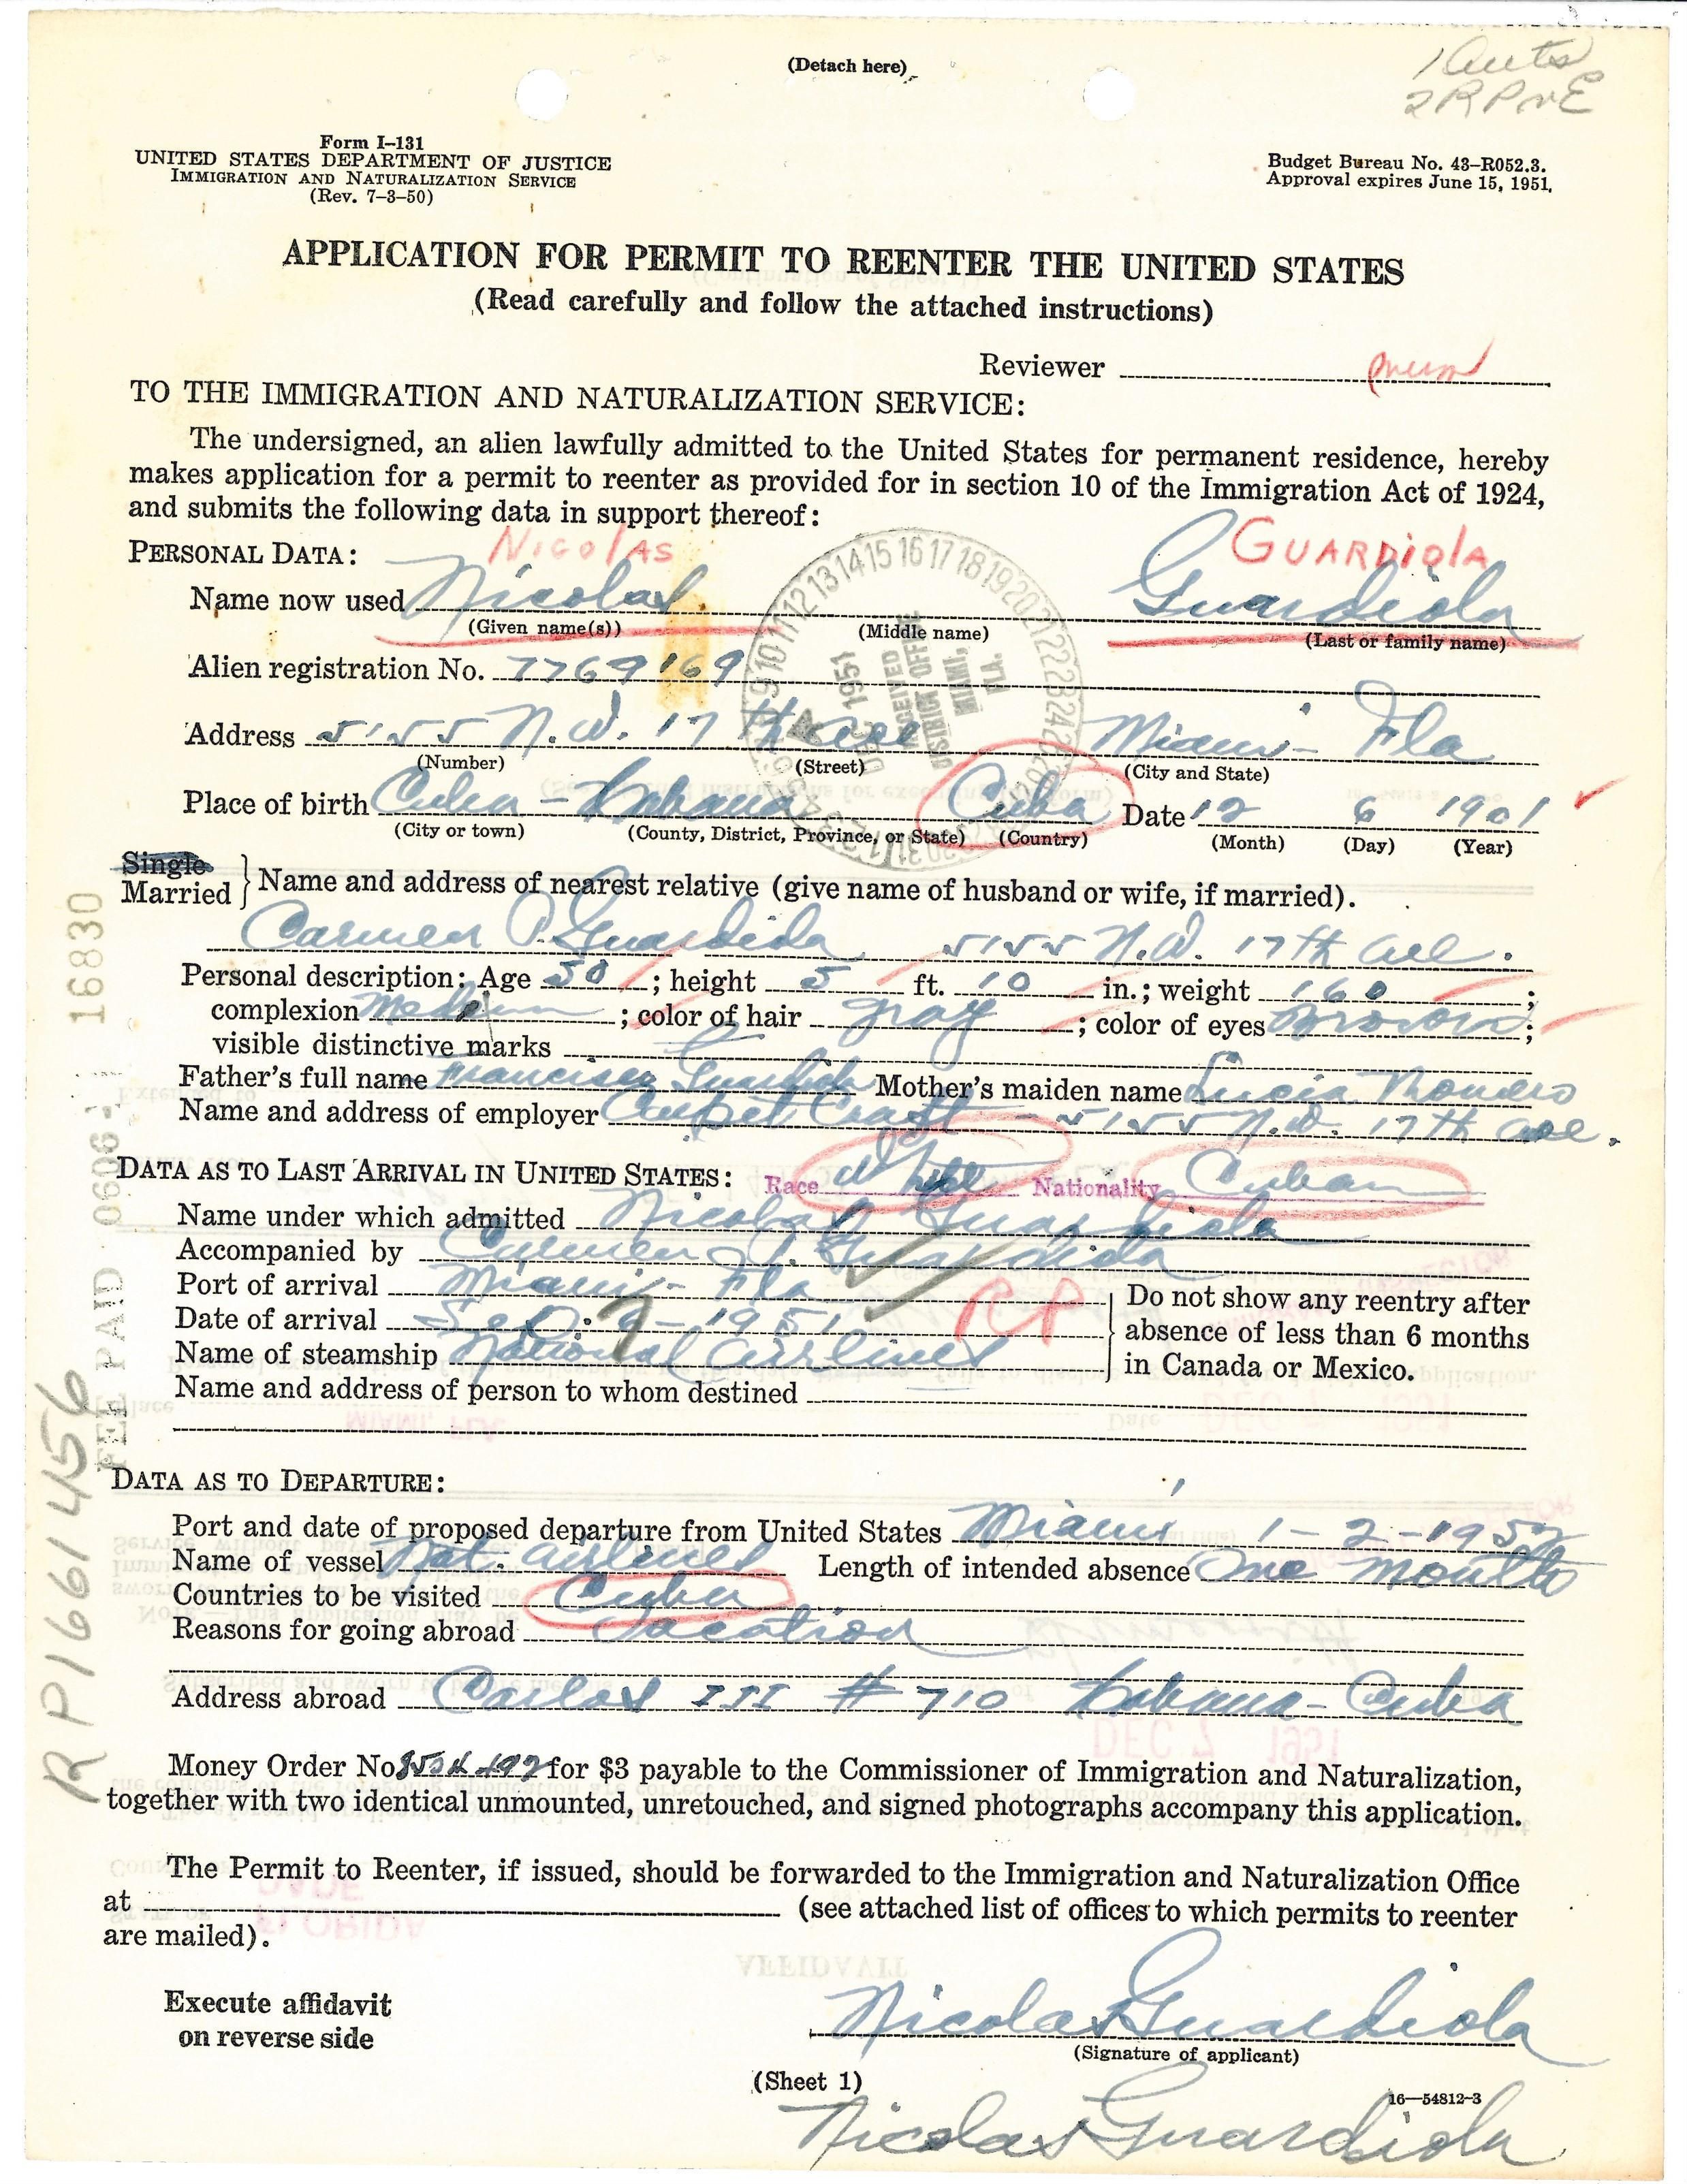 (Detach here)
Form I-131
UNITED STATES DEPARTMENT OF JUSTICE
IMMIGRATION AND NATURALIZATION SERVICE
(Rev. 7-3-50)
Budget Bureau No. 43-R052.3.
Approval expires June 15, 1951.
APPLICATION FOR PERMIT TO REENTER THE UNITED STATES
(Read carefully and follow the attached instructions)
Reviewer
TO THE IMMIGRATION AND NATURALIZATION SERVICE:
The undersigned, an alien lawfully admitted to the United States for permanent residence, hereby
makes application for a permit to reenter as provided for in section 10 of the Immigration Act of 1924,
and submits the following data in support thereof:
NICOLAS GUARDIOLA
PERSONAL DATA:
Name now used Nicolas Guardiola
(Given name(s)) (Middle name) (Last or family name)
Alien registration No. 7769169
Address 5155 N.W. 17th ave Miami - Fla
(Number) (Street) (City and State)
Place of birth Cuba - Habana Cuba Date 12 6 1901
(City or town) (County, District, Province, or State) (Country) (Month) (Day) (Year)
RECEIVED
DISTRICT OFFICE
MIAMI,
FLA.
DEC 1951
Single
Married } Name and address of nearest relative (give name of husband or wife, if married).
Carmen P. Guardiola 5155 N.W. 17th ave.
Personal description: Age 50; height 5 ft. 10 in.; weight 160;
complexion Medium; color of hair gray; color of eyes Brown;
visible distinctive marks
Father's full name Francisco Guardiola Mother's maiden name Lucia Romero
Name and address of employer Carpet Craft - 5155 N.W. 17th ave.
DATA AS TO LAST ARRIVAL IN UNITED STATES: Race White Nationality Cuban
Name under which admitted Nicolas Guardiola
Accompanied by Carmen P. Guardiola
Port of arrival Miami - Fla
Date of arrival Sep. - 1951
Name of steamship National Airlines
Do not show any reentry after
absence of less than 6 months
in Canada or Mexico.
Name and address of person to whom destined
DATA AS TO DEPARTURE:
Port and date of proposed departure from United States Miami 1-2-1952
Name of vessel Nat. Airlines Length of intended absence One month
Countries to be visited Cuba
Reasons for going abroad Vacation
Address abroad Carlos III # 710 Habana - Cuba
Money Order No. for $3 payable to the Commissioner of Immigration and Naturalization,
together with two identical unmounted, unretouched, and signed photographs accompany this application.
The Permit to Reenter, if issued, should be forwarded to the Immigration and Naturalization Office
at (see attached list of offices to which permits to reenter
are mailed).
Execute affidavit
on reverse side
Nicolas Guardiola
(Signature of applicant)
(Sheet 1)
16-54812-3
Nicolas Guardiola
FEE PAID 0606-1 16830
RP1661456